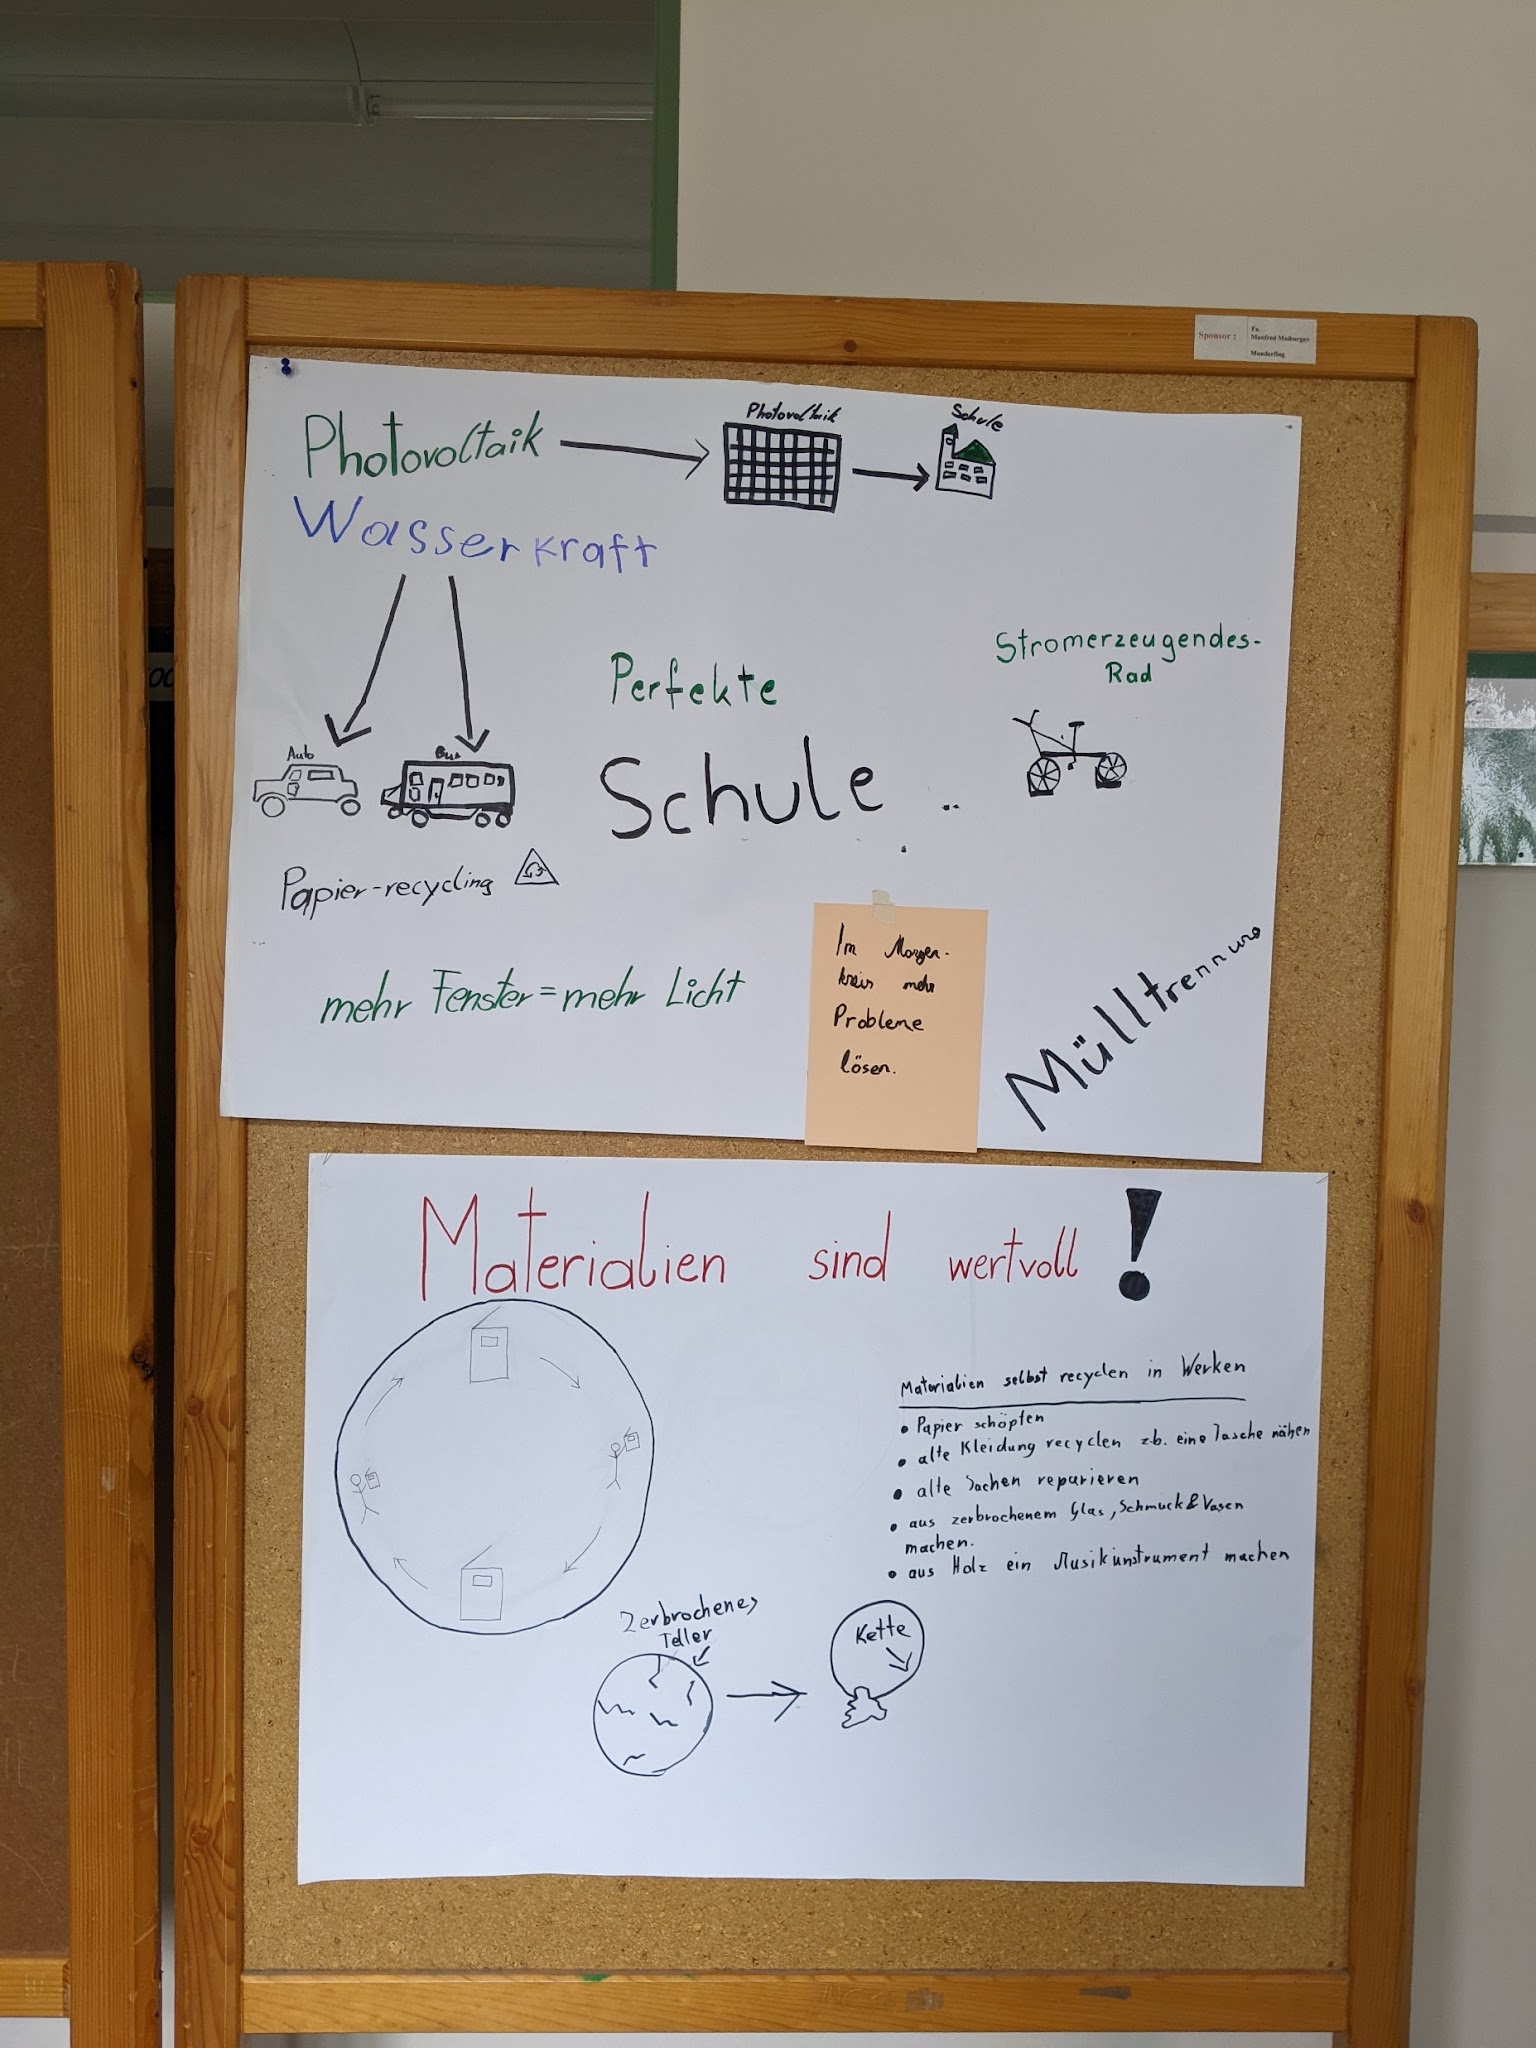 Sponsor :
Fa.
Manfred Moiburger
Munderfing
Photovoltaik
Photovoltaik
Schule
Wasserkraft
Stromerzeugendes-
Rad
Perfekte
Schule
Auto
Bus
Papier-recycling
mehr Fenster = mehr Licht
Im Morgen-
kreis mehr
Probleme
lösen.
Mülltrennung
Materialien sind wertvoll !
Materialien selbst recyclen in Werken
• Papier schöpfen
• alte Kleidung recyclen z.b. eine Tasche nähen
• alte Sachen reparieren
• aus zerbrochenem Glas, Schmuck & Vasen
machen.
• aus Holz ein Musikinstrument machen
Zerbrochenes
Teller
Kette